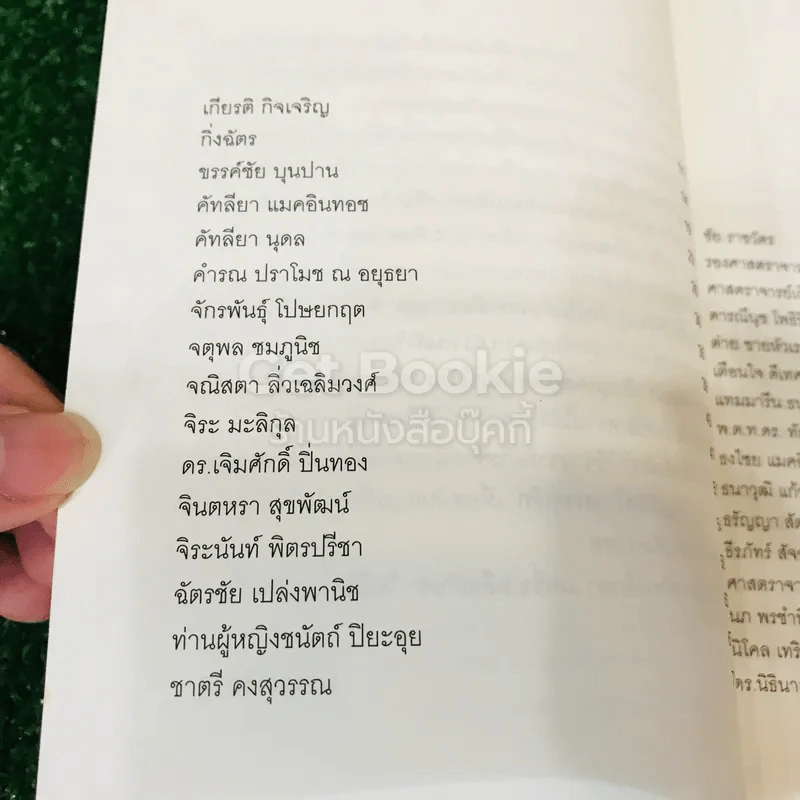 เกียรติ กิจเจริญ
กิ่งฉัตร
ขรรค์ชัย บุนปาน
คัทลียา แมคอินทอช
คัทลียา นุดล
คำรณ ปราโมช ณ อยุธยา
จักรพันธุ์ โปษยกฤต
จตุพล ชมภูนิช
จณิสตา ลิ่วเฉลิมวงศ์
จิระ มะลิกุล
ดร.เจิมศักดิ์ ปิ่นทอง
จินตหรา สุขพัฒน์
จิระนันท์ พิตรปรีชา
ฉัตรชัย เปล่งพานิช
ท่านผู้หญิงชนัตถ์ ปิยะอุย
ชาตรี คงสุวรรณ
Get Bookie
ร้านหนังสือบุ๊คกี้
ชัย ราชวัตร
รองศาสตราจาร
ศาสตราจารย์
ดารณีนุช
ต่าย ชายหัวเร
เตือนใจ ดีเทศ
แทมมารีน
พ.ต.ท.ดร. ทั
ธงไชย แมค
ธนาวุฒิ
ธรัญญา
ธีรภัทร์ สัจ
ศาสตราจา
นภา พรชำ
นิโคล เทริ
ดร.นิธินา